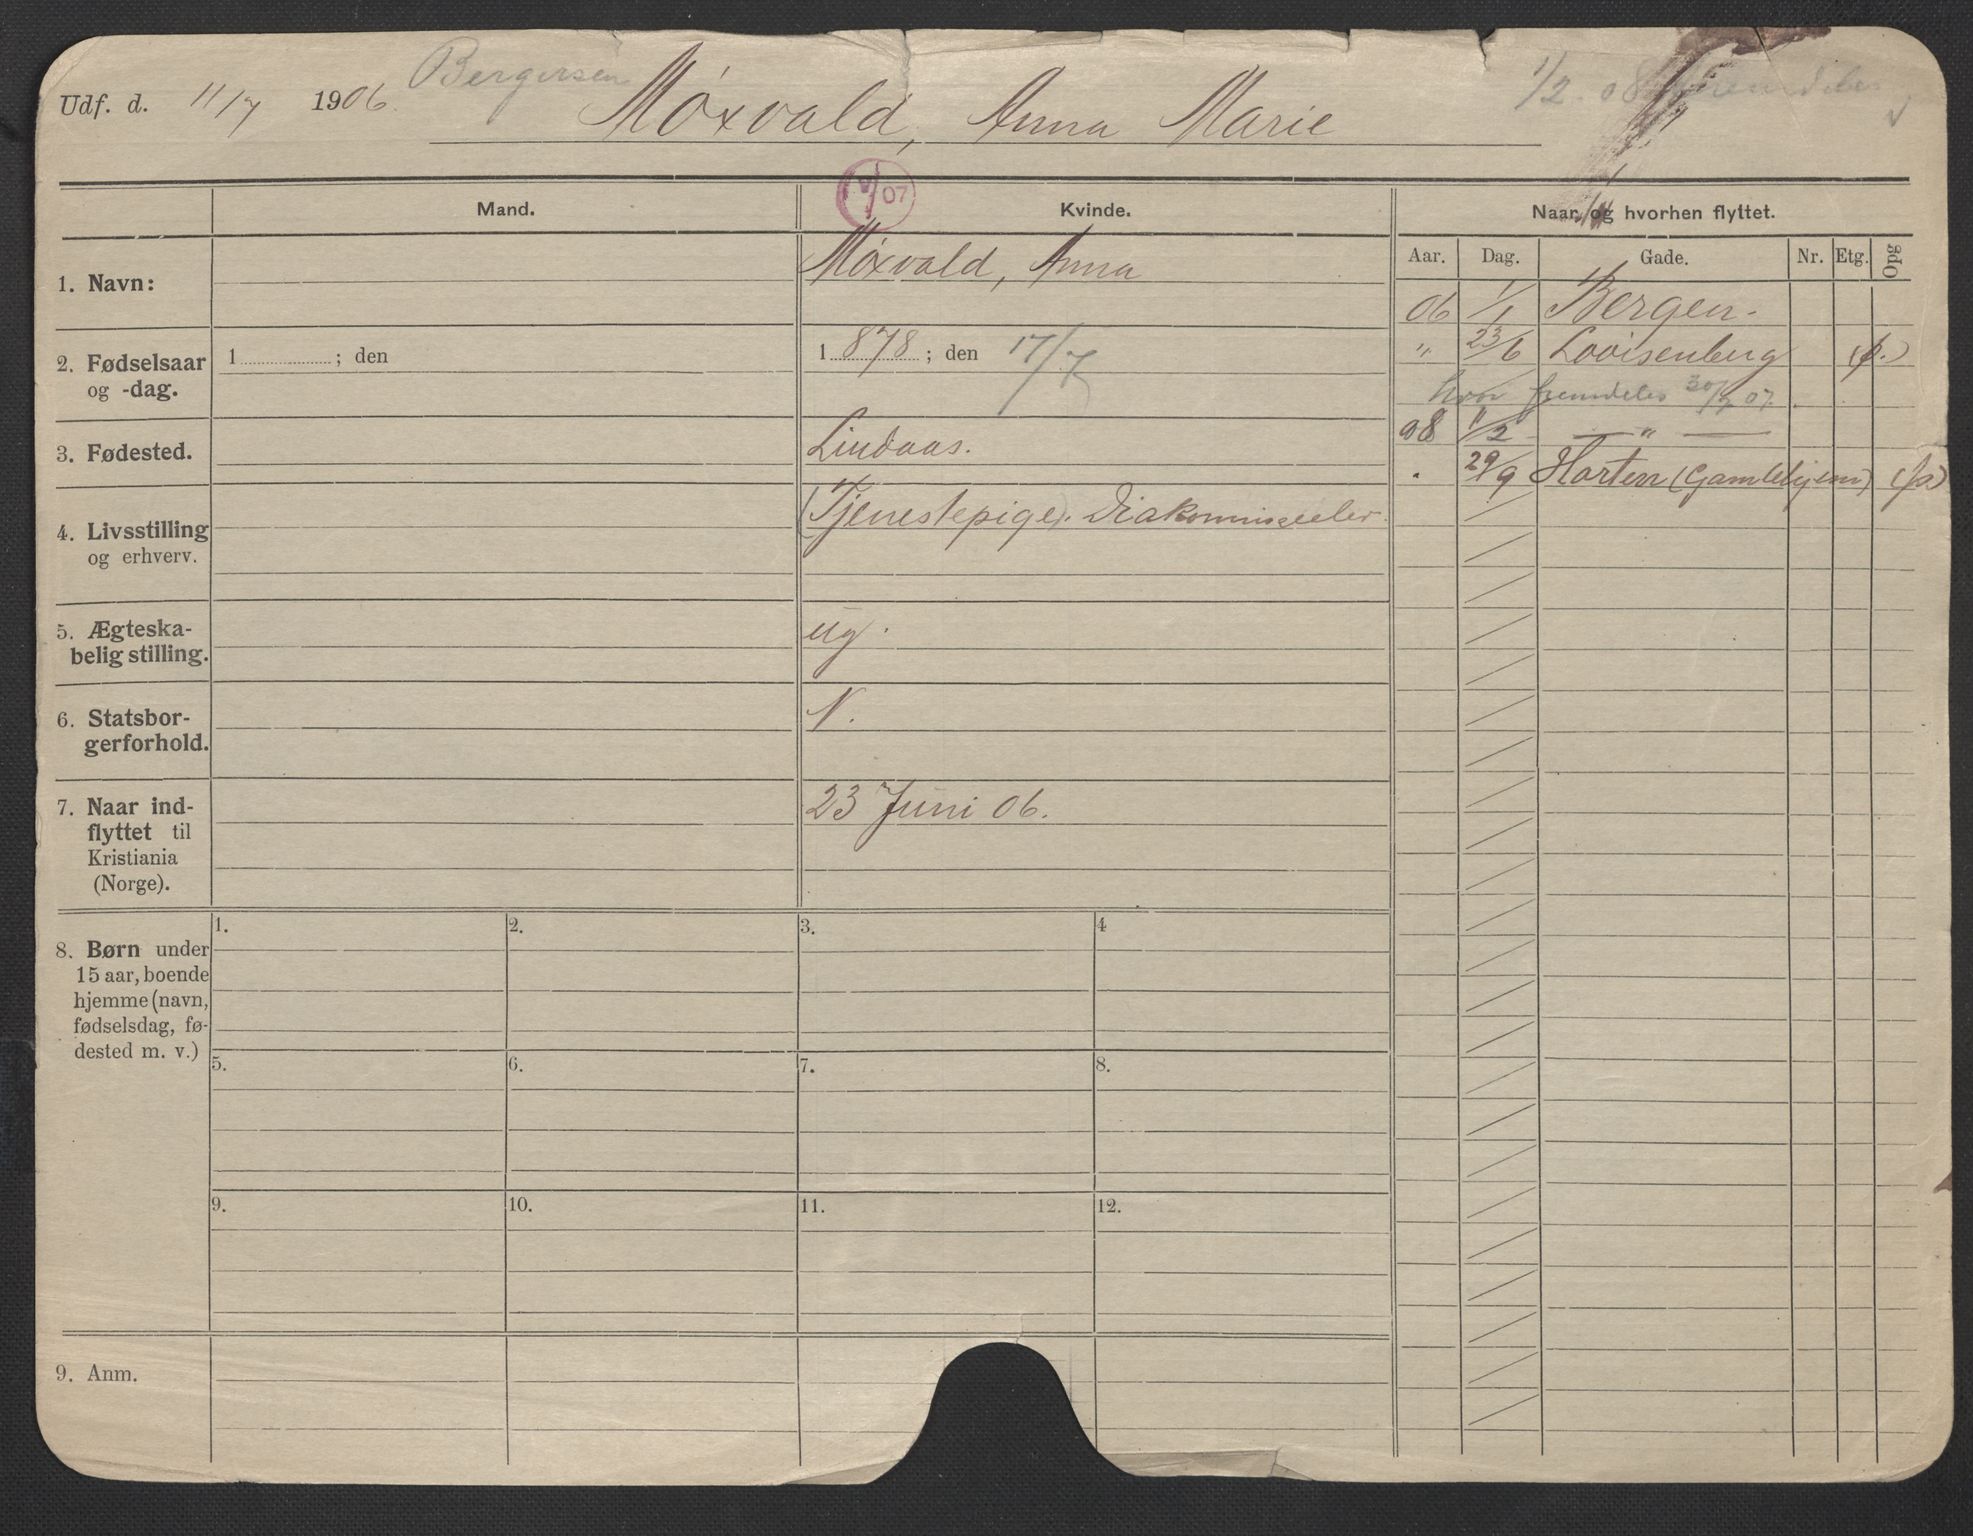 Udf. d. 11/7 1906. Bergersen Móxvald, Anna Marie 1/2. 08
Mand. Kvinde. Naar og hvorhen flyttet.
/07
Aar. Dag. Gade. Nr. Etg. Opg
1. Navn: Móxvald, Anna
06 1/1 Bergen.
2. Fødselsaar og -dag. 1 ; den 1 878 ; den 17/7
" 23/6 Lovisenberg (f.)
hvor fremdeles 30/7 07.
08 1/2 — " —
3. Fødested. Lindaas.
. 29/9 Horten (Gamlehjem) (fa)
4. Livsstilling og erhverv. (Tjenestepige). Diakonisseelev.
5. Ægteska-
belig stilling. ug.
6. Statsbor-
gerforhold. N.
7. Naar ind-
flyttet til
Kristiania
(Norge). 23 Juni 06.
8. Børn under
15 aar, boende
hjemme (navn,
fødselsdag, fø-
dested m. v.)
1. 2. 3. 4
5. 6. 7. 8.
9. 10. 11. 12.
9. Anm.